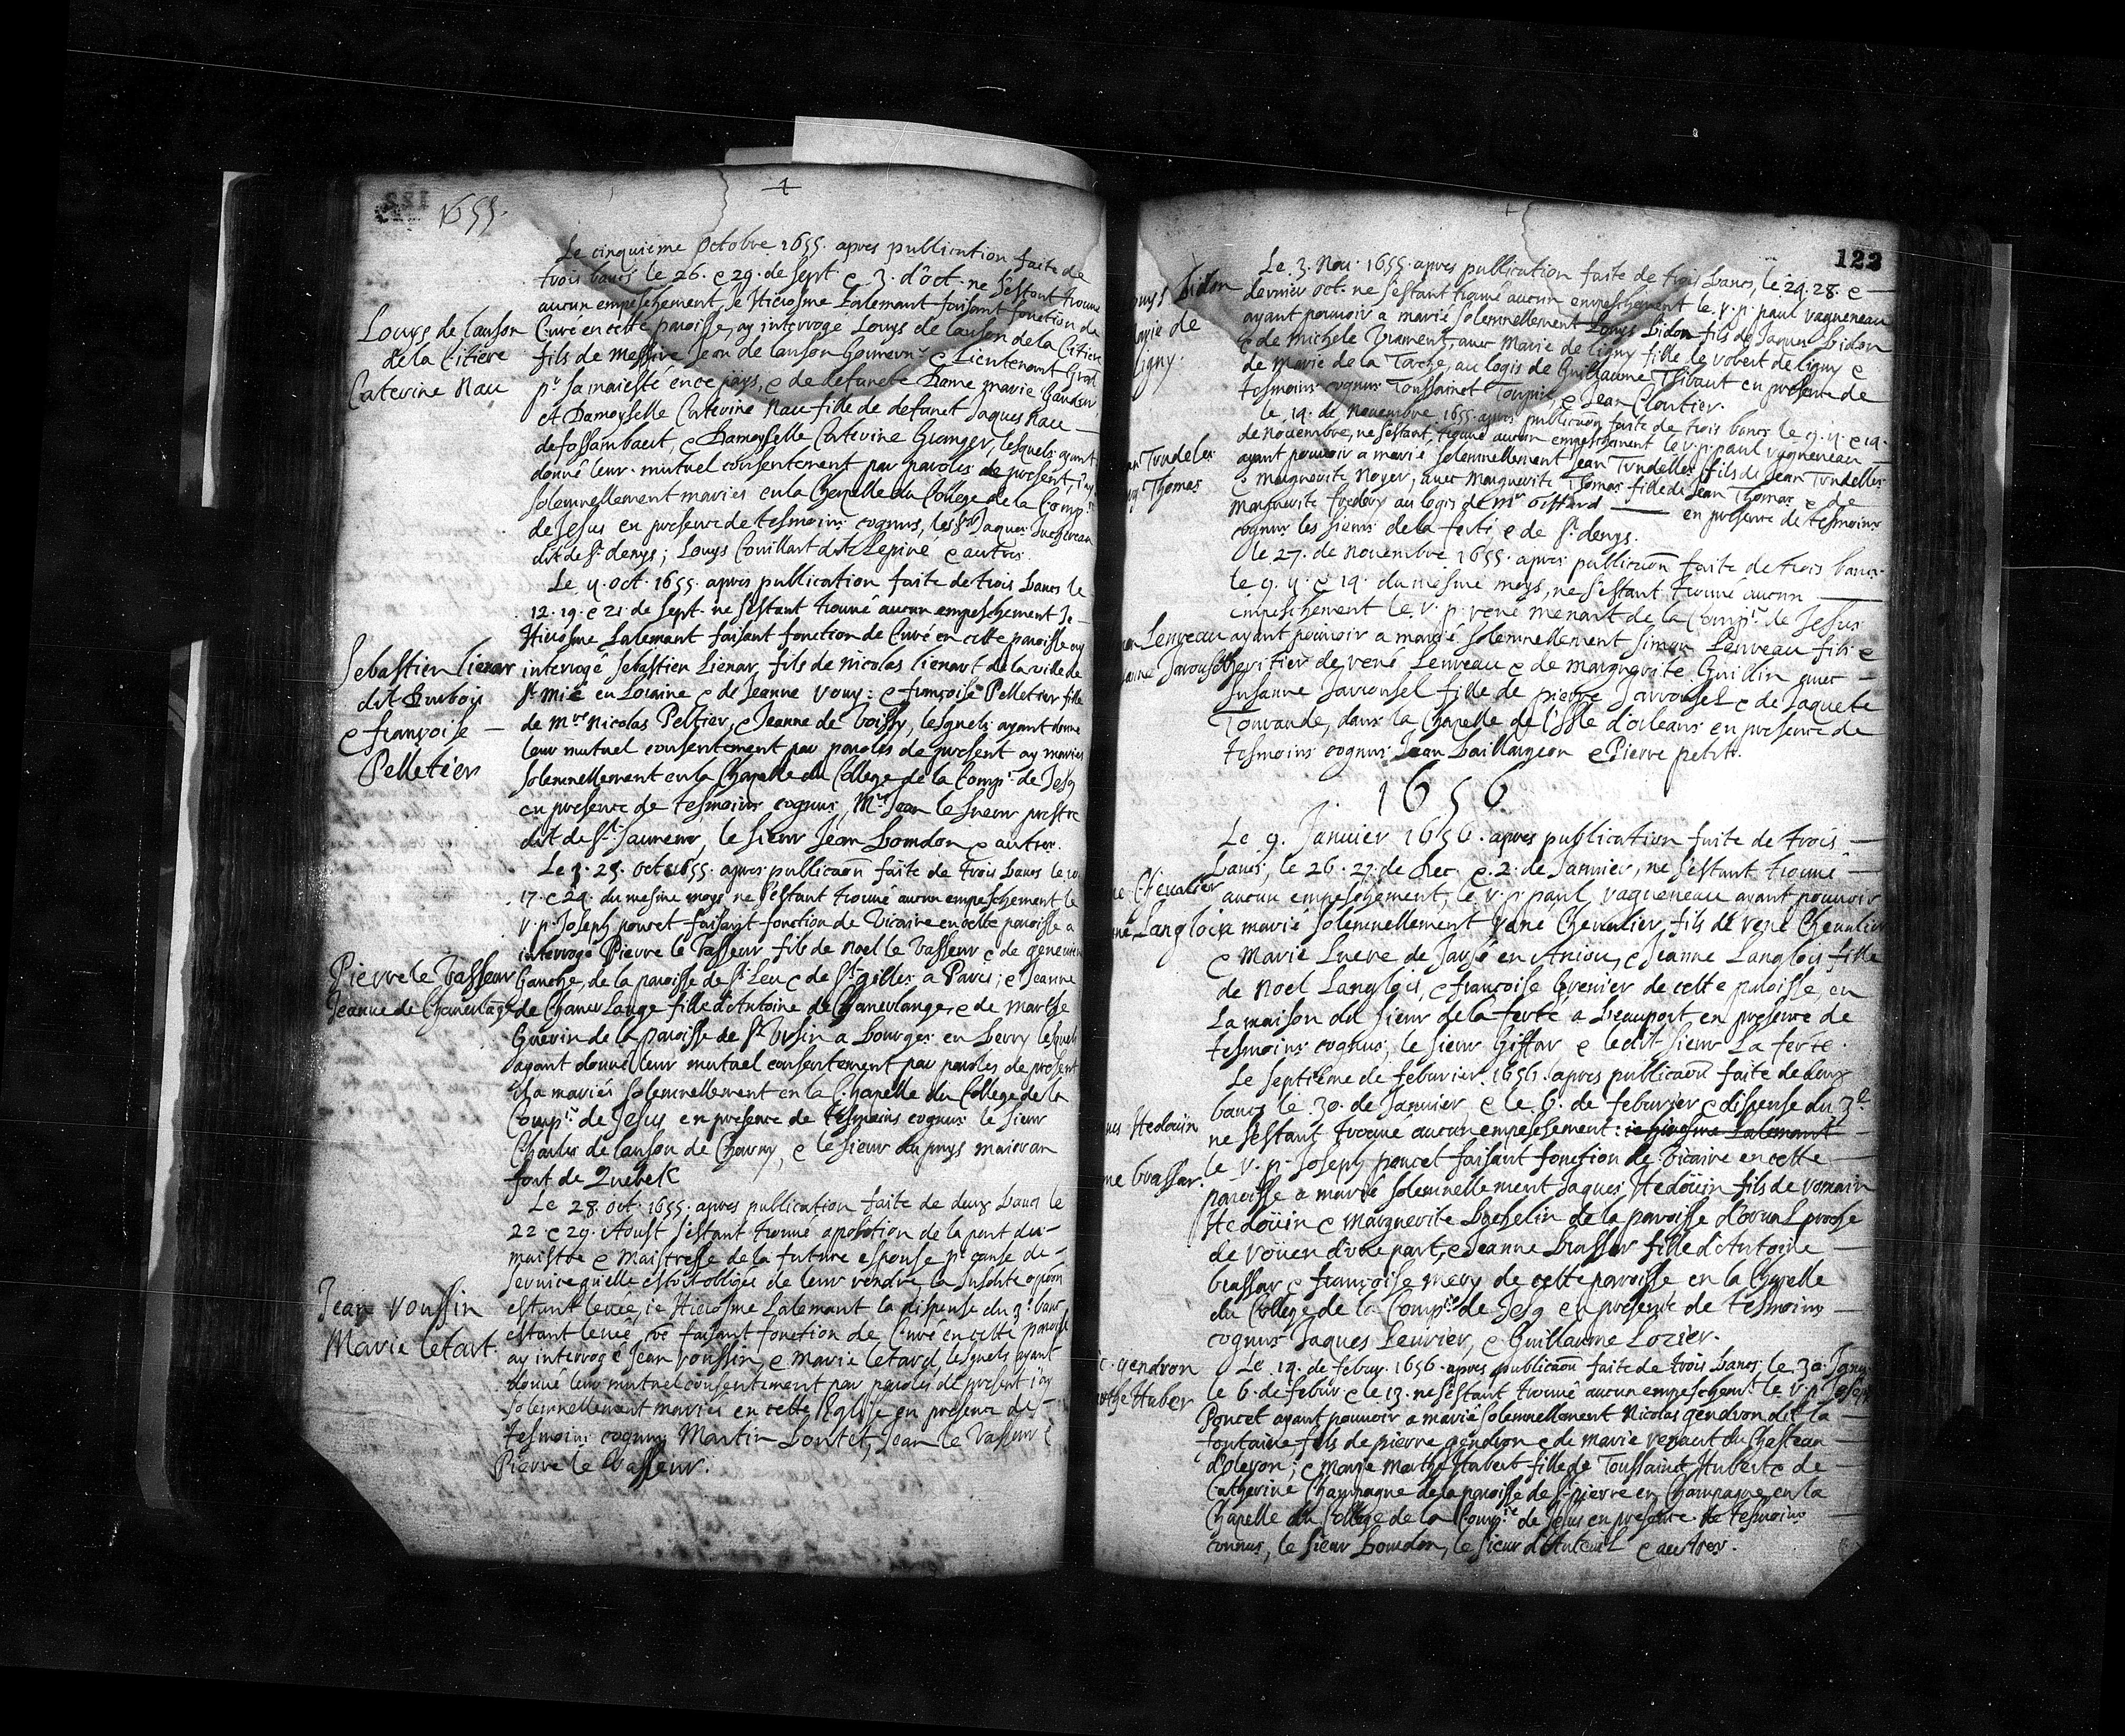 1655.
Le cinquième Octobre 1655. apres publication faite de
trois bancs le 26. e 29. de sept. e 3. d'oct. ne s'estant trouué
aucun empeschement, Je Hierosme Lalemant faisant fonction de
Louys de lauson
Curé en cette paroisse, ay interrogé Louys de lauson de la Citiere
de la Citiere
fils de Messire Jean de lauson Gouvern.r e Lieutenant Gnal
Caterine Nau
pr sa maiesté en ce pays, e de defuncte Dame marie Gaudar,
et Damoyselle Caterine Nau fille de defunct Jaques Nau
de fossambaut, e Damoyselle Caterine Granger, lesquels ayant
donné leur mutuel consentement par paroles de present, i'ay
solemnellement mariés en la Chapelle du College de la Comp.ie
de Jesus en presence de tesmoins cognus, les Srs Jaques Juchereau
dit de St. denys; Louys Couillart dit Lepiné e autres.
Le 4. oct. 1655. apres publication faite de trois bancs le
12. 19. e 21. de sept. ne s'estant trouué aucun empeschement Je
Hierosme Lalemant faisant fonction de Curé en cette paroisse ay
Sebastien lienar
interrogé Sebastien Lienar, fils de Nicolas lienart de la ville de
dit Durbois
St. Mié en Loraine e de Jeanne vouy: e françoise Pelletier fille
e françoise
de Mre Nicolas Peltier, e Jeanne de Voissy, lesquels ayant donné
Pelletier
leur mutuel consentement par paroles de present ay mariés
solemnellement en la Chapelle du College de la Comp.ie de Jesq
en presence de tesmoins cognus, Mre Jean le Sueur prestre
dit de St. Sauveur, le sieur Jean Bourdon e autres.
Le 25. oct. 1655. apres publicaõn faite de trois bancs le 10
17. e 24. du mesme moys ne s'estant trouué aucun empeschement le
r. p. Joseph poncet faisant fonction de Vicaire en cette paroisse a
interrogé Pierre le Vasseur fils de Noel le Vasseur e de geneuieue
Pierre le Vasseur
Gauche, de la paroisse de St. Leu e de St. gilles a Paris; e Jeanne
Jeanne de Chaneulage
de Chaneulange fille d'Antoine de Chaneulange, e de Marthe
Guerin de la paroisse de St. Ursin a Bourges en Berry lesquels
ayant donné leur mutuel consentement par paroles de present
il a mariés solemnellement en la Chapelle du College de la
Comp.ie de Jesus, en presence de tesmoins cognus le sieur
Charles de lauson de Charny, e le sieur du puys maior au
fort de Quebek
Le 28. oct. 1655. apres publication faite de deux bancs le
22 e 29. Aoust s'estant trouué apõsition de la part du
maistre e maistresse de la future espouse pr cause de
seruice qu'elle estoit obligée de leur rendre la susdite opõon
Jean voussin
estant leuée, ie Hierosme Lalemant la dispense du 3e banc
Marie letart.
estant leuée, faisant fonction de Curé en cette paroisse
ay interrogé Jean voussin, e Marie letard, lesquels ayant
donné leur mutuel consentement par paroles de present i'ay
solemnellement mariés en cette Eglise en presence de
tesmoins cognus Martin Boutet, Jean le Vasseur e
Pierre le Vasseur.
122
Le 3. Nou. 1655. apres publication faite de trois bancs, le 24. 28. e
ouys bidon
dernier oct. ne s'estant trouué aucun empeschement le r. p. paul ragueneau
arie de
ayant pouuoir a marié solemnellement Louys bidon fils de Jaques bidon
ligny.
e de Michele Drament, auec Marie de ligny fille de robert de ligny e
de Marie de la Tarche, au logis de Guillaume Thibaut en presence de
tesmoins cognus Toussainct Toupin, e Jean Cloutier.
le 19. de Nouembre 1655. apres publicaõn faite de trois bancs le 9. 11. e 14.
de nouembre, ne s'estant trouué aucun empeschement le r. p. paul ragueneau
an Trudeles
ayant pouuoir a marié solemnellement Jean Trudelles fils de Jean Trudelles
g. Thomas
e Marguerite Noyer, auec Marguerite Thomas fille de Jean Thomas e de
Marguerite fredery au logis de Mr Giffard en presence de tesmoins
cognus les sieurs de la ferté e de St. denys.
le 27. de Nouembre 1655. apres publicaõn faite de trois bancs
le 9. 11. e 14. du mesme moys, ne s'estant trouué aucun
empeschement le r. p. rené menart de la Comp.ie de Jesus
Lereau
ayant pouuoir a marié solemnellement Simon Lereau fils e
anne Jarousel
heritier de rené Lereau e de marguerite Guillin auec
Susanne Jarrousel fille de pierre Jarrousel e de Jaquete
Tourande, dans la Chapelle de l'Isle d'orleans en presence de
tesmoins cognus Jean baillargeon e Pierre petit.
1656
Le 9. Januier 1656. apres publication faite de trois
bancs, le 26. 27. de Dec. e 2. de Januier, ne s'estant trouué
e Cheualier
aucun empeschement, le r. p. paul ragueneau ayant pouuoir
ne Langlois
a marié solemnellement rené Cheualier, fils de rené Cheualier
e Marie Lucre de Jarsé en Aniou, e Jeanne Langlois fille
de Noel Langlois, e françoise Grenier de cette paroisse, en
la maison du sieur de la ferté a beauport en presence de
tesmoins cognus, le sieur Giffar e ledit sieur la ferté.
Le septième de feburier 1656. apres publicaõn faite de deux
bancs le 30. de Januier, e le 6. de feburier e dispense du 3e.
ues Hedoüin
ne s'estant trouué aucun empeschement: ie hierosme Lalemant
ne brassar.
le r. p. Joseph poncet faisant fonction de Vicaire en cette
paroisse a marié solemnellement Jaques Hedoüin fils de romain
Hedoüin e Marguerite Bachelin de la paroisse d'orual proche
de roüen d'une part, e Jeanne brassar fille d'Antoine
brassar e françoise mery de cette paroisse en la Chapelle
du College de la Comp.ie de Jesq en presence de tesmoins
cognus Jaques Leurier, e Guillaume Lozier.
c. gendron
Le 19. de febur. 1656. apres publicaõn faite de trois bancs, le 30. Janu.
the Huber
le 6. de febur. e le 13. ne s'estant trouué aucun empeschemt. le r. p. Joseph
Poncet ayant pouuoir a marié solemnellement Nicolas gendron dit la
fontaine, fils de pierre gendron e de marie renaut du Chasteau
d'oleron; e Marie Marthe Hubert fille de Toussainct Hubert e de
Catherine Champagne de la paroisse de St. pierre en Champagne en la
Chapelle du College de la Comp.ie de Jesus en presence de tesmoins
connus, le sieur bourdon, le sieur d'Auteuil e autres.